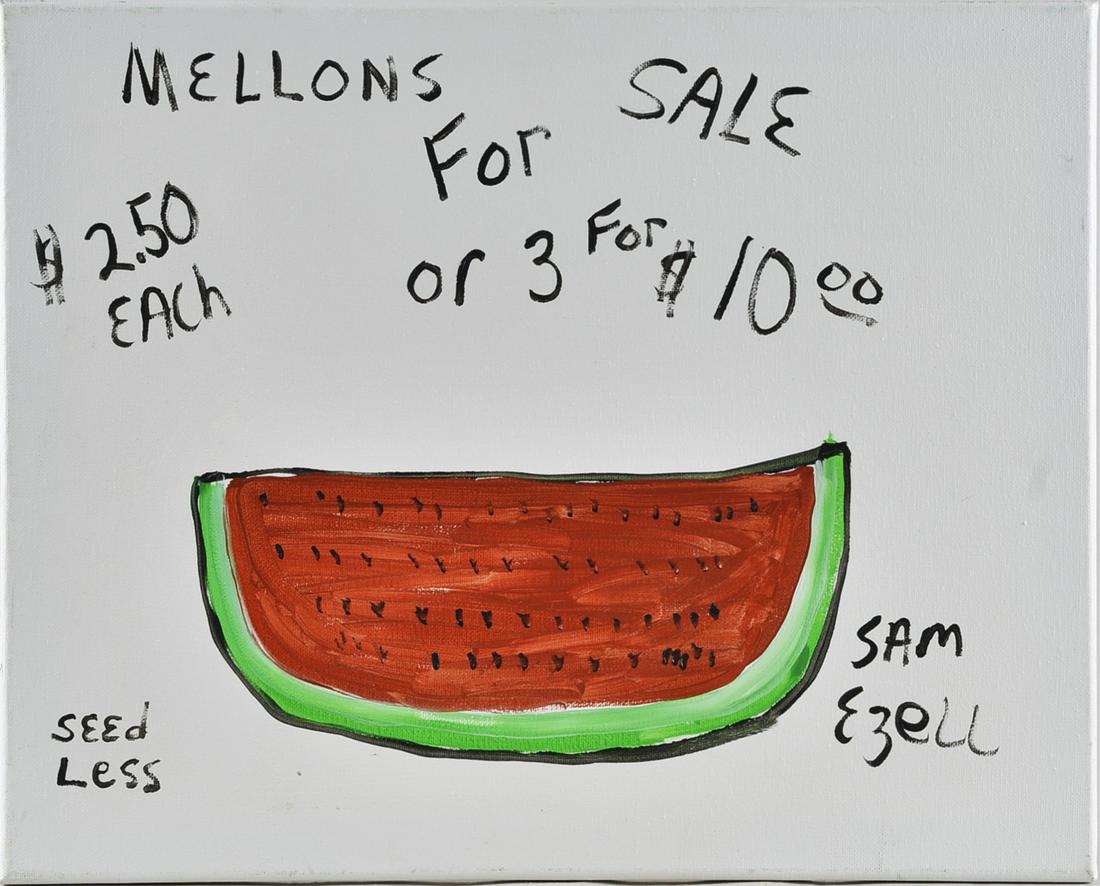 MELLONS For SALE
$ 2.50
EACh
or 3 For $ 10 00
SEEd
LESS
SAM
EzELL